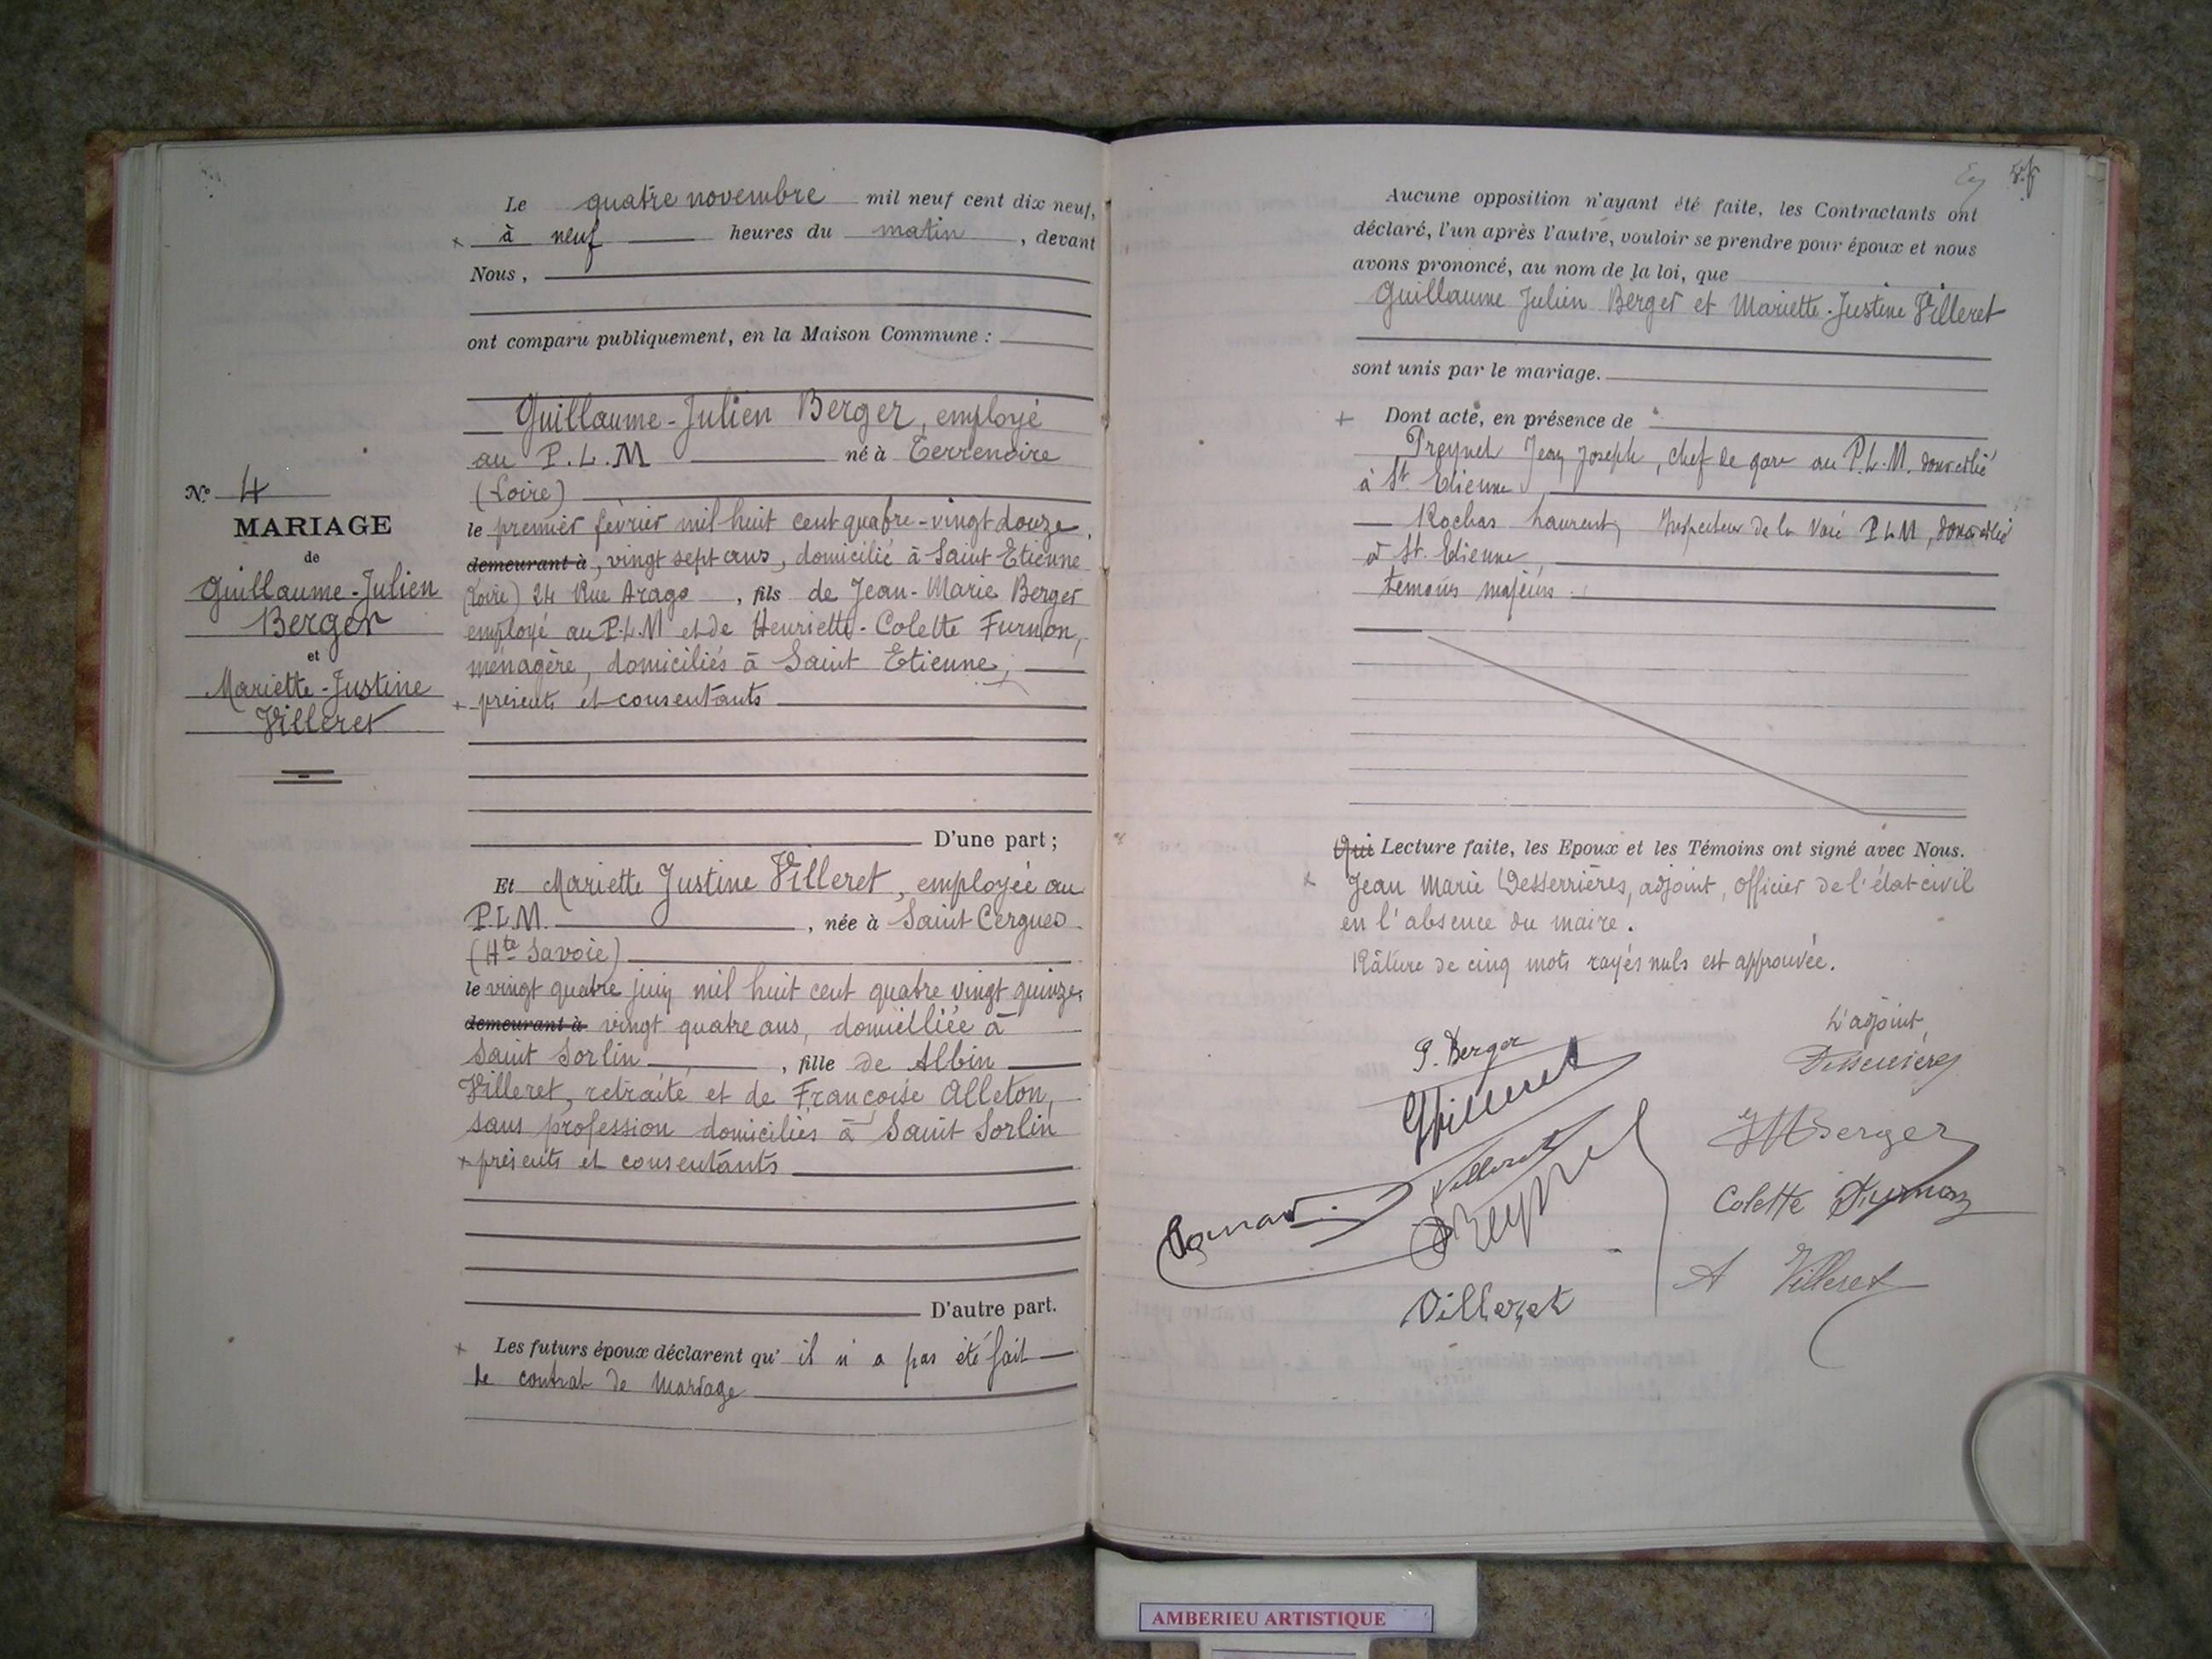 Nº 4
MARIAGE
de
Guillaume-Julien
Berger
et
Mariette-Justine
Villeret
Le quatre novembre mil neuf cent dix neuf,
à neuf heures du matin, devant
Nous,
ont comparu publiquement, en la Maison Commune :
Guillaume-Julien Berger, employé
au P.L.M né à Terrenoire
(Loire)
le premier février mil huit cent quatre-vingt douze,
demeurant à, vingt sept ans, domicilié à Saint Etienne
(Loire) 24 Rue Arago, fils de Jean-Marie Berger
employé au P.L.M et de Henriette-Colette Furnon,
ménagère, domiciliés à Saint Etienne,
présents et consentants
D'une part ;
Et Mariette Justine Villeret, employée au
P.L.M., née à Saint Cergues
(Hte Savoie)
le vingt quatre juin mil huit cent quatre vingt quinze,
demeurant à vingt quatre ans, domicilliée à
Saint Sorlin, fille de Albin
Villeret, retraité et de Françoise Alleton,
sans profession domiciliés à Saint Sorlin
présents et consentants
D'autre part.
Les futurs époux déclarent qu'il n'a pas été fait
de contrat de mariage
Aucune opposition n'ayant été faite, les Contractants ont
déclaré, l'un après l'autre, vouloir se prendre pour époux et nous
avons prononcé, au nom de la loi, que
Guillaume Julien Berger et Mariette-Justine Villeret
sont unis par le mariage.
Dont acte, en présence de
Preynet Jean Joseph, chef de gare au P.L.M. domicilié
à St Etienne,
Rochas Laurent, Inspecteur de la Voie P L M, domicilié
à St. Etienne
temoins majeurs.
Qui Lecture faite, les Epoux et les Témoins ont signé avec Nous.
Jean Marie Desserrières, adjoint, officier de l'état-civil
en l'absence du maire.
Râture de cinq mots rayés nuls est approuvée.
L'adjoint,
Desserrières
Berger
Villeret
JMBerger
Villeret
Preynet
Colette Furnon
A Villeret
Villeret
AMBERIEU ARTISTIQUE